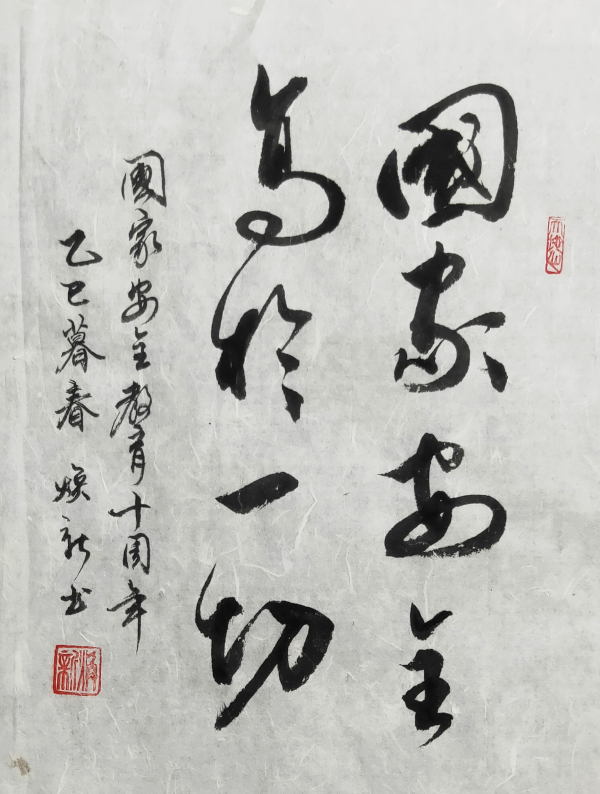 國家安全
高於一切
國家安全教育十周年
乙巳暮春 煥新书